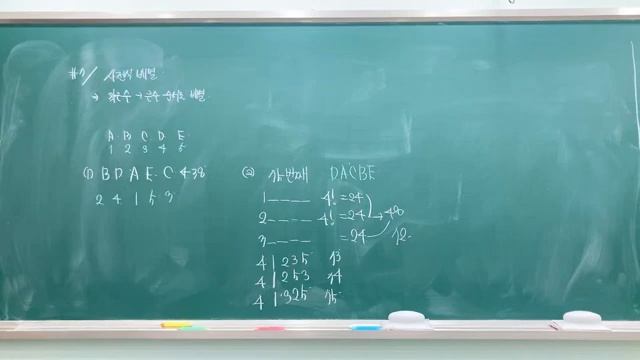 #7/ 사전식 배열
→ 작은수 → 큰수 순서로 배열
A B C D E
1 2 3 4 5
(1) B D A E C 43번
2 4 1 5 3
(2) 75번째 DACBE
1____ 4! = 24
2____ 4! = 24 → 48
3____ = 24 72
4 1 2 3 5 73
4 1 2 5 3 74
4 1 3 2 5 75